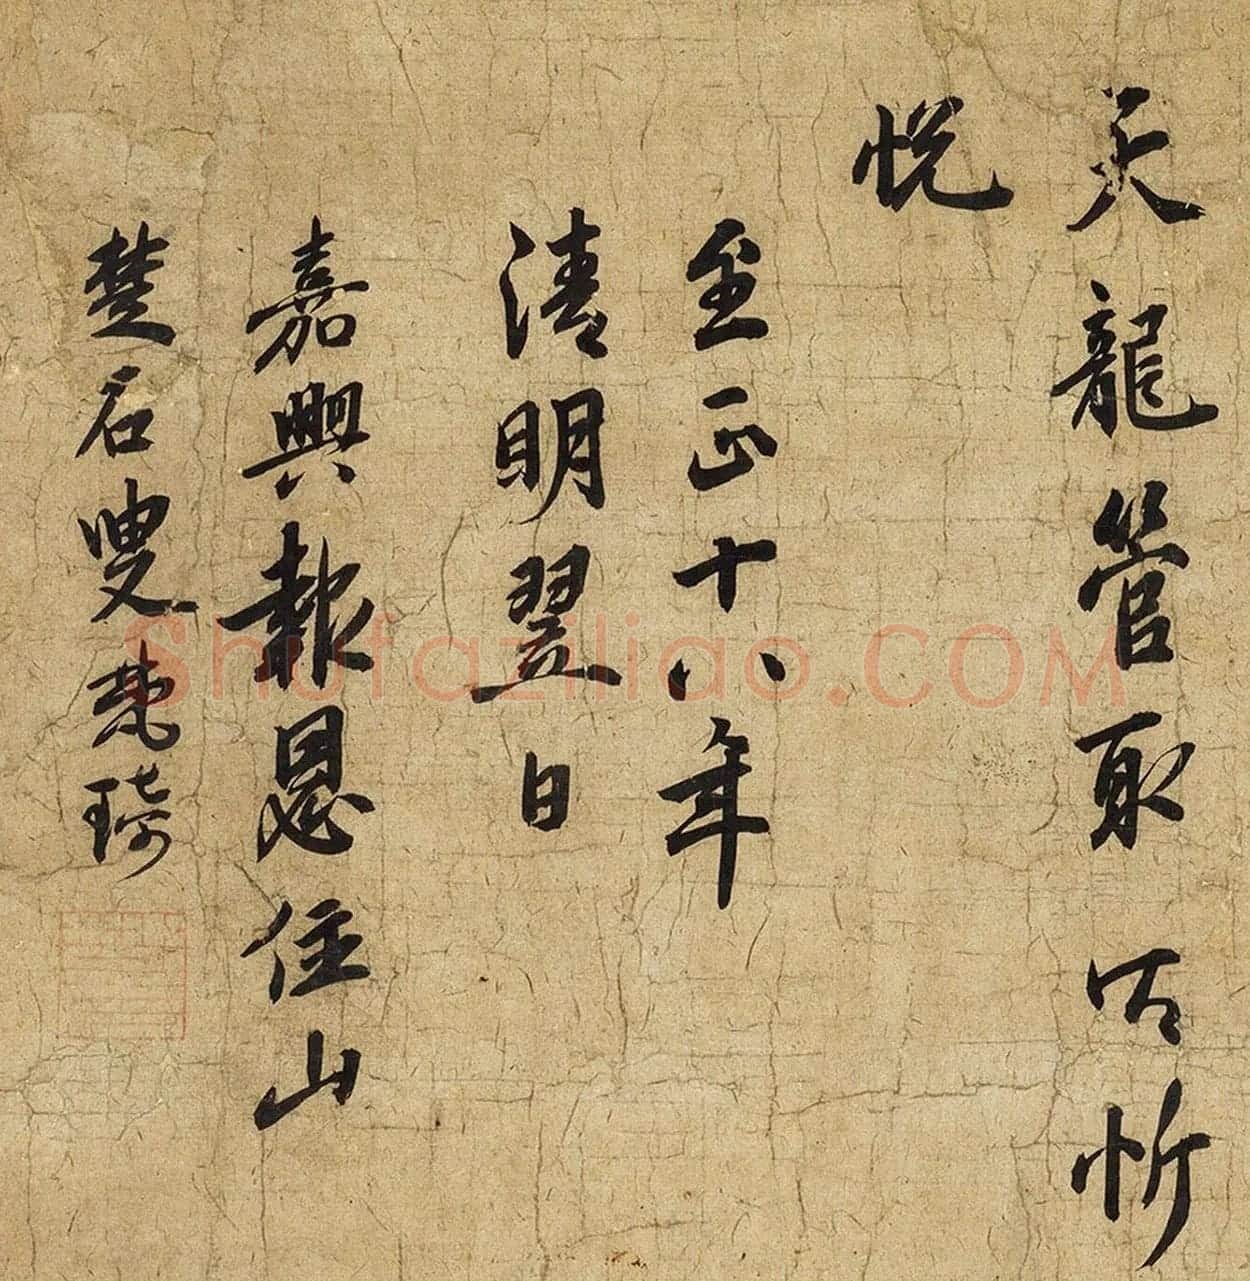 天龍管取忻
悦
至正十八年
清明翌日
嘉興報恩住山
楚石叟梵琦
Shufaziliao.COM